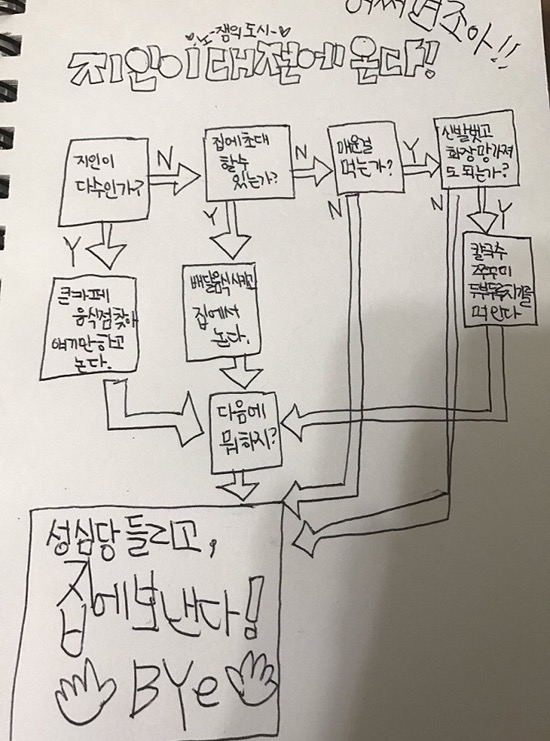 어쩌면조아!!
노-잼의 도시-
지인이 대전에 온다!
지인이
다수인가?
N
집에초대
할수
있는가?
N
매운걸
먹는가?
Y
신발벗고
화장망가져
도 되는가?
Y
Y
N
N
Y
큰카페
음식점찾아
얘기만하고
논다.
배달음식시키고
집에서
논다.
칼국수
쭈꾸미
두부두루치기를
먹인다
다음에
뭘하지?
성심당들리고,
집에보낸다!
BYe